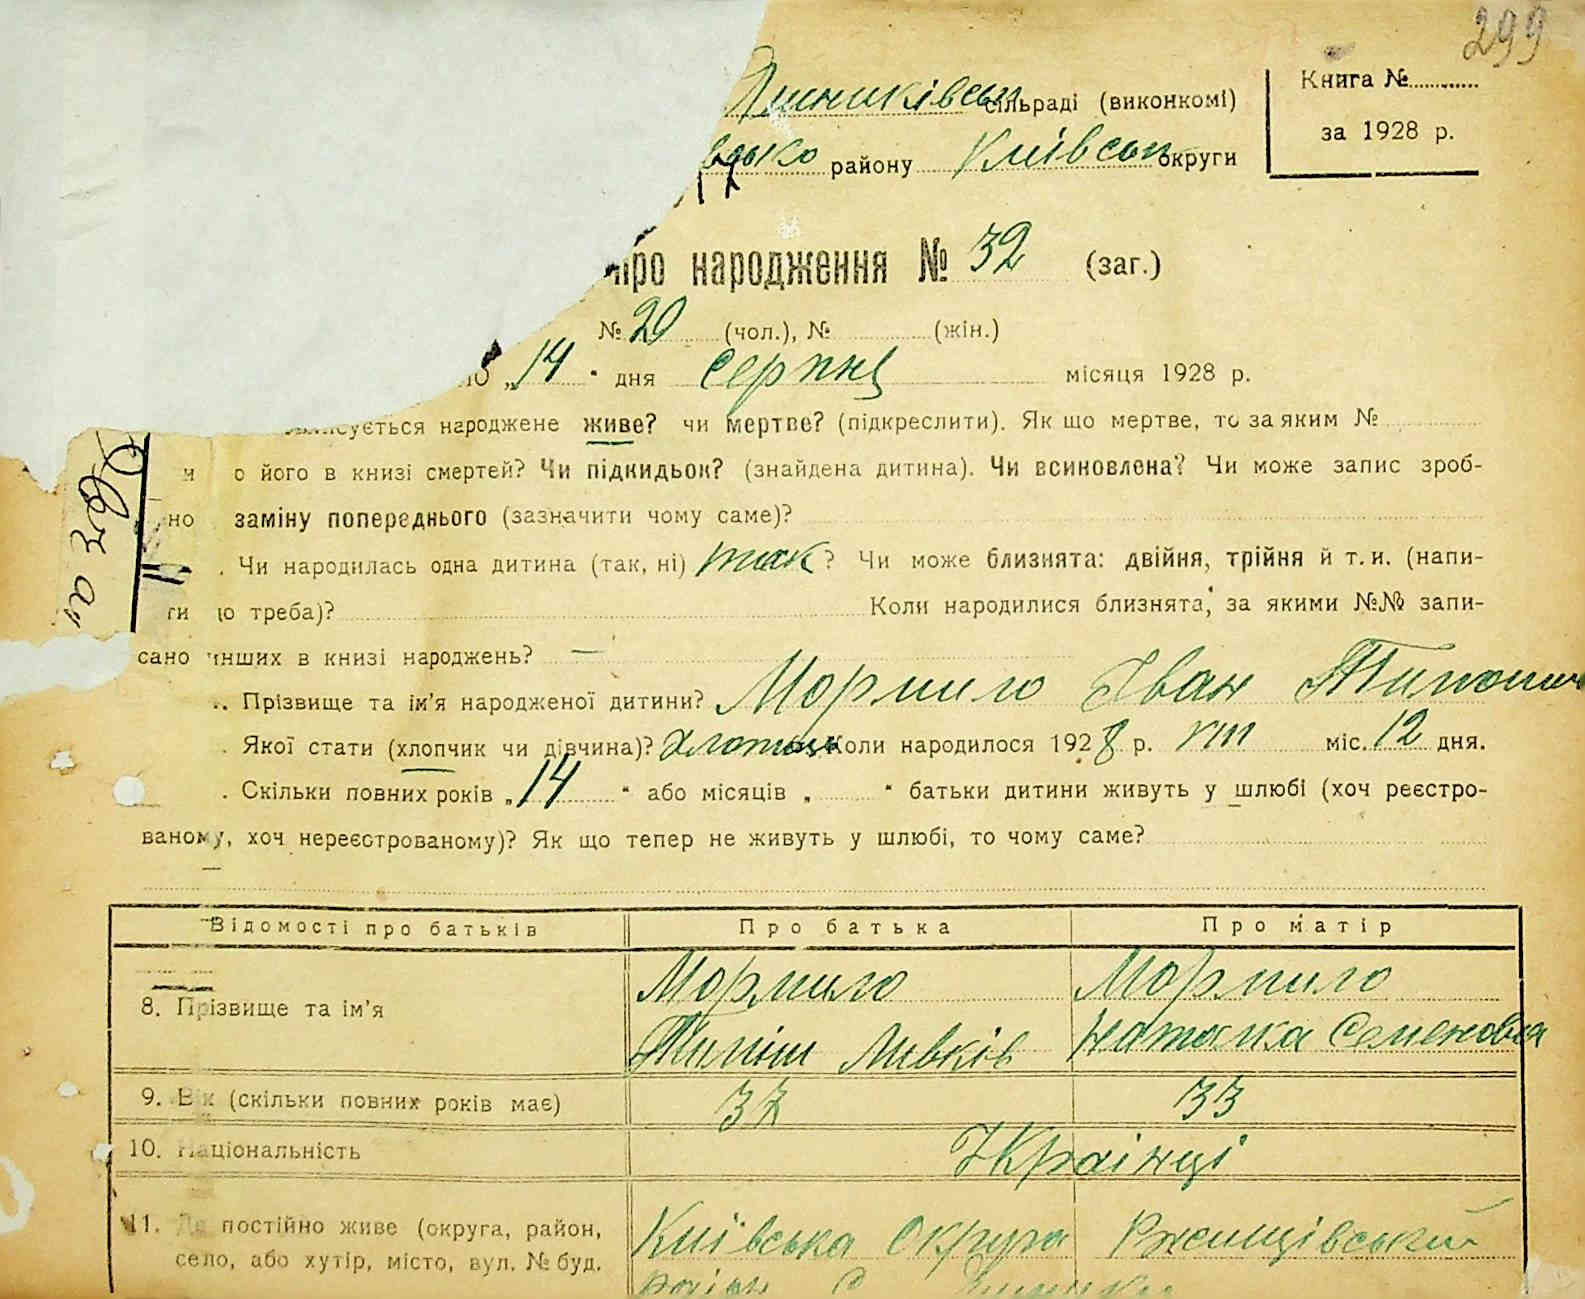 299
сільраді (виконкомі)
Книга №
за 1928 р.
району Київськ округи
про народження № 32 (заг.)
№ 20 (чол.), № (жін.)
„14“ дня серпня місяця 1928 р.
народжене живе? чи мертве? (підкреслити). Як що мертве, то за яким №
о його в книзі смертей? Чи підкидьок? (знайдена дитина). Чи всиновлена? Чи може запис зроб-
но заміну попереднього (зазначити чому саме)?
. Чи народилась одна дитина (так, ні) так? Чи може близнята: двійня, трійня й т. и. (напи-
ти що треба)? Коли народилися близнята, за якими №№ запи-
сано инших в книзі народжень? —
. Прізвище та ім'я народженої дитини? Мормило Іван
. Якої стати (хлопчик чи дівчина)? Коли народилося 1928 р. VIII міс. 12 дня.
. Скільки повних років „14“ або місяців „ “ батьки дитини живуть у шлюбі (хоч реєстро-
ваному, хоч нереєстрованому)? Як що тепер не живуть у шлюбі, то чому саме?
Відомості про батьків Про батька Про матір
8. Прізвище та ім'я Мормило Мормило
Наталка Семеновна
9. Вік (скільки повних років має) 37 33
10. Національність Українці
11. Де постійно живе (округа, район, Київська Округа Ржищівський
село, або хутір, місто, вул. № буд. район С